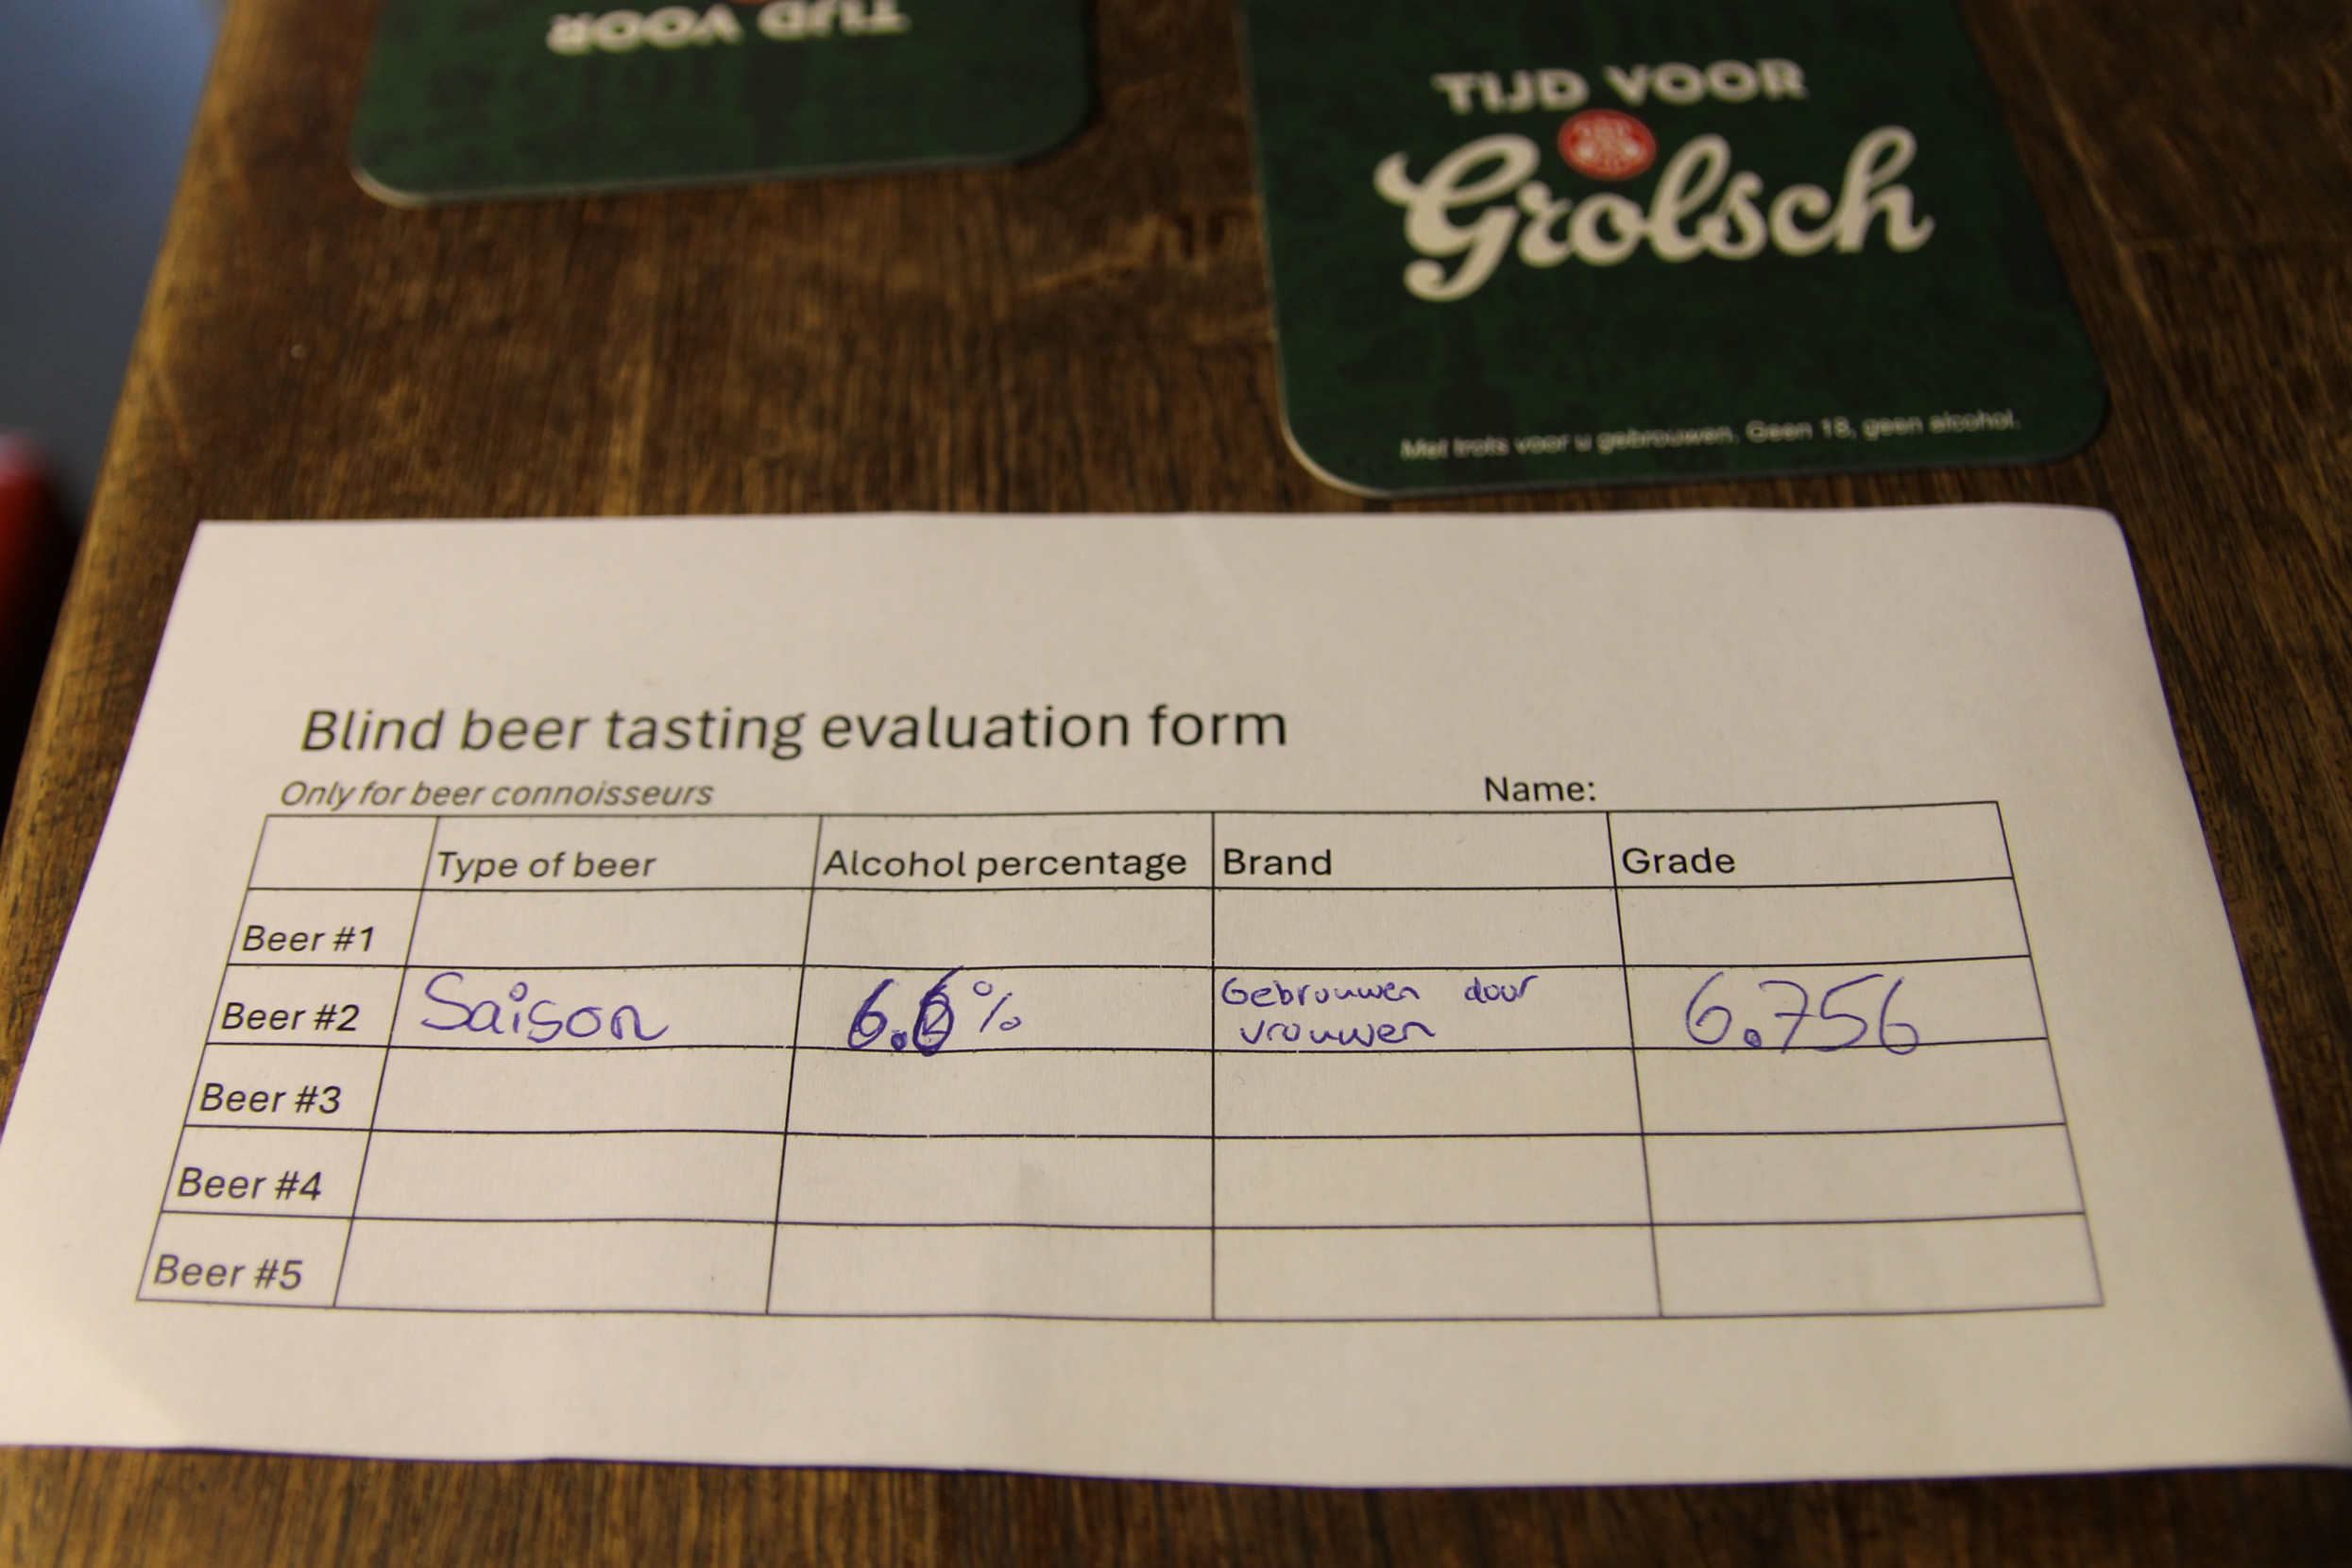 TIJD VOOR
TIJD VOOR
Grolsch
Met trots voor u gebrouwen. Geen 18, geen alcohol.
Blind beer tasting evaluation form
Only for beer connoisseurs Name:
Type of beer Alcohol percentage Brand Grade
Beer #1
Beer #2 Saison 6.6% Gebrouwen door 6.756
vrouwen
Beer #3
Beer #4
Beer #5